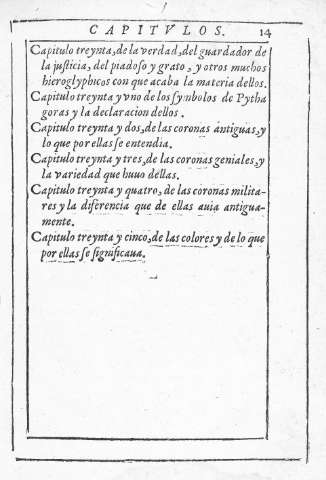 CAPITVLOS. 14
Capitulo treynta, de la verdad, del guardador de
la justicia, del piadoso y grato, y otros muchos
hieroglyphicos con que acaba la materia dellos.
Capitulo treynta y vno de los symbolos de Pytha
goras y la declaracion dellos.
Capitulo treynta y dos, de las coronas antiguas, y
lo que por ellas se entendia.
Capitulo treynta y tres, de las coronas geniales, y
la variedad que huuo dellas.
Capitulo treynta y quatro, de las coronas milita-
res y la diferencia que de ellas auia antigua-
mente.
Capitulo treynta y cinco, de las colores y de lo que
por ellas se significaua.